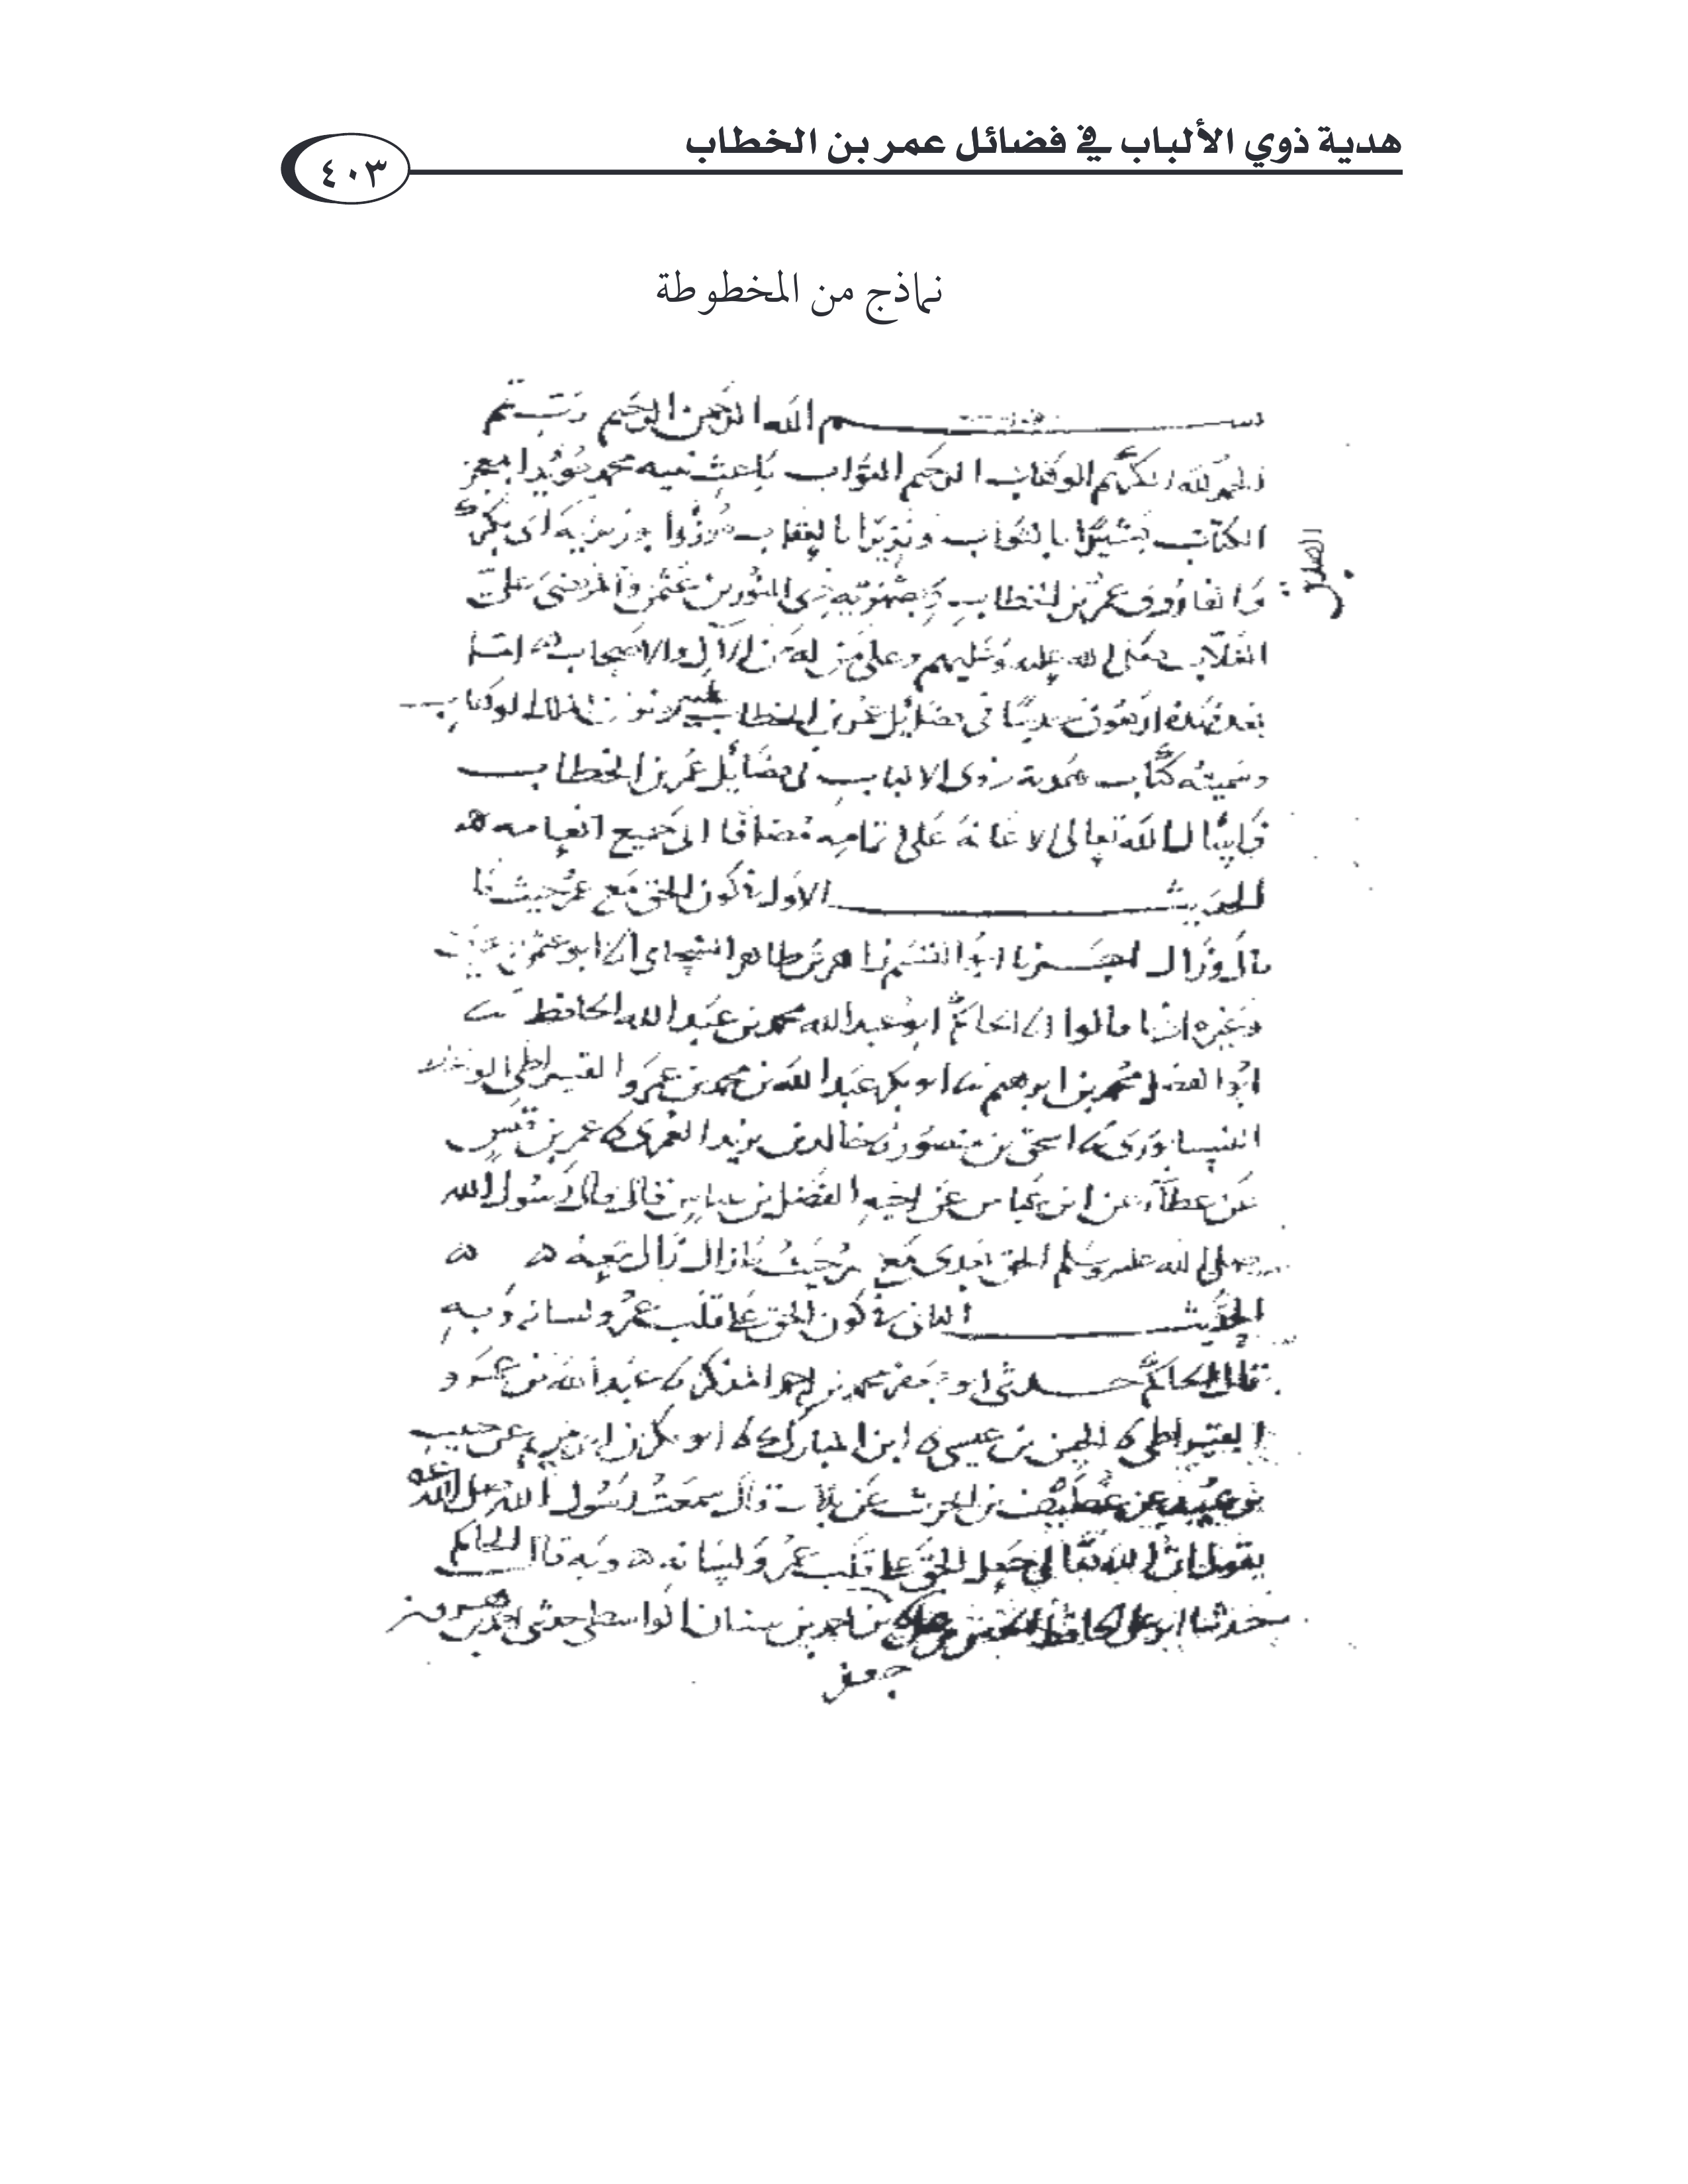 هدية ذوي الألباب في فضائل عمر بن الخطاب
٤٠٣
نماذج من المخطوطة
بسم الله الرحمن الرحيم رب تمم
الحمد لله الكريم الوهاب الرحيم التواب باعث نبيه محمد مؤيدا بمعجز
الكتاب بشيرا بالثواب ونذيرا بالعقاب بوزيريه أبي بكر
الصديق
والفاروق عمر بن الخطاب وبصهريه ذي النورين عثمن والمرتضى علي
صلى الله عليه وعليهم وعلى من له من الال والاصحاب اما
بعد فهذه اربعون حديثا في فضايل عمر بن الخطاب
وسميته كتاب هدية ذوي الالباب في فضايل عمر بن الخطاب
الله تعالى الاعانة على تمامه مضافا الى جميع انعامه
الحديث الاول في كون الحق مع عمر حيث ما
دار وزال اخبرنا ابو القسم زاهر بن طاهر الشحامي انا ابو عمرو
وغيره قالوا انا الحاكم ابو عبد الله محمد بن عبد الله الحافظ
ابو الفضل محمد بن ابرهيم ابو بكر عبد الله بن محمد بن عمرو القيراطي
النيسابوري اسحق بن منصور خالد بن يزيد العمري عمر بن قيس
عن عطاء عن ابن عباس عن اخيه الفضل بن عباس قال قال رسول الله
صلى الله عليه وسلم الحق بعدي مع عمر حيث ما زال زال معه
الحديث الثاني في كون الحق على قلب عمر ولسانه وبه
قال الحاكم حدثني ابو جعفر محمد بن احمد المذكر عبد الله بن عمرو
القيراطي الحسن بن عيسى ابن المبارك ابو بكر بن ابي مريم عن حبيب
بن عبيد عن غضيف بن الحرث عن بلال قال سمعت رسول الله صلى الله عليه
يقول ان الله تعالى جعل الحق على قلب عمر ولسانه وبه قال الحاكم
حدثنا ابو علي الحافظ بن احمد بن سنان الواسطي حدثني
جعفر